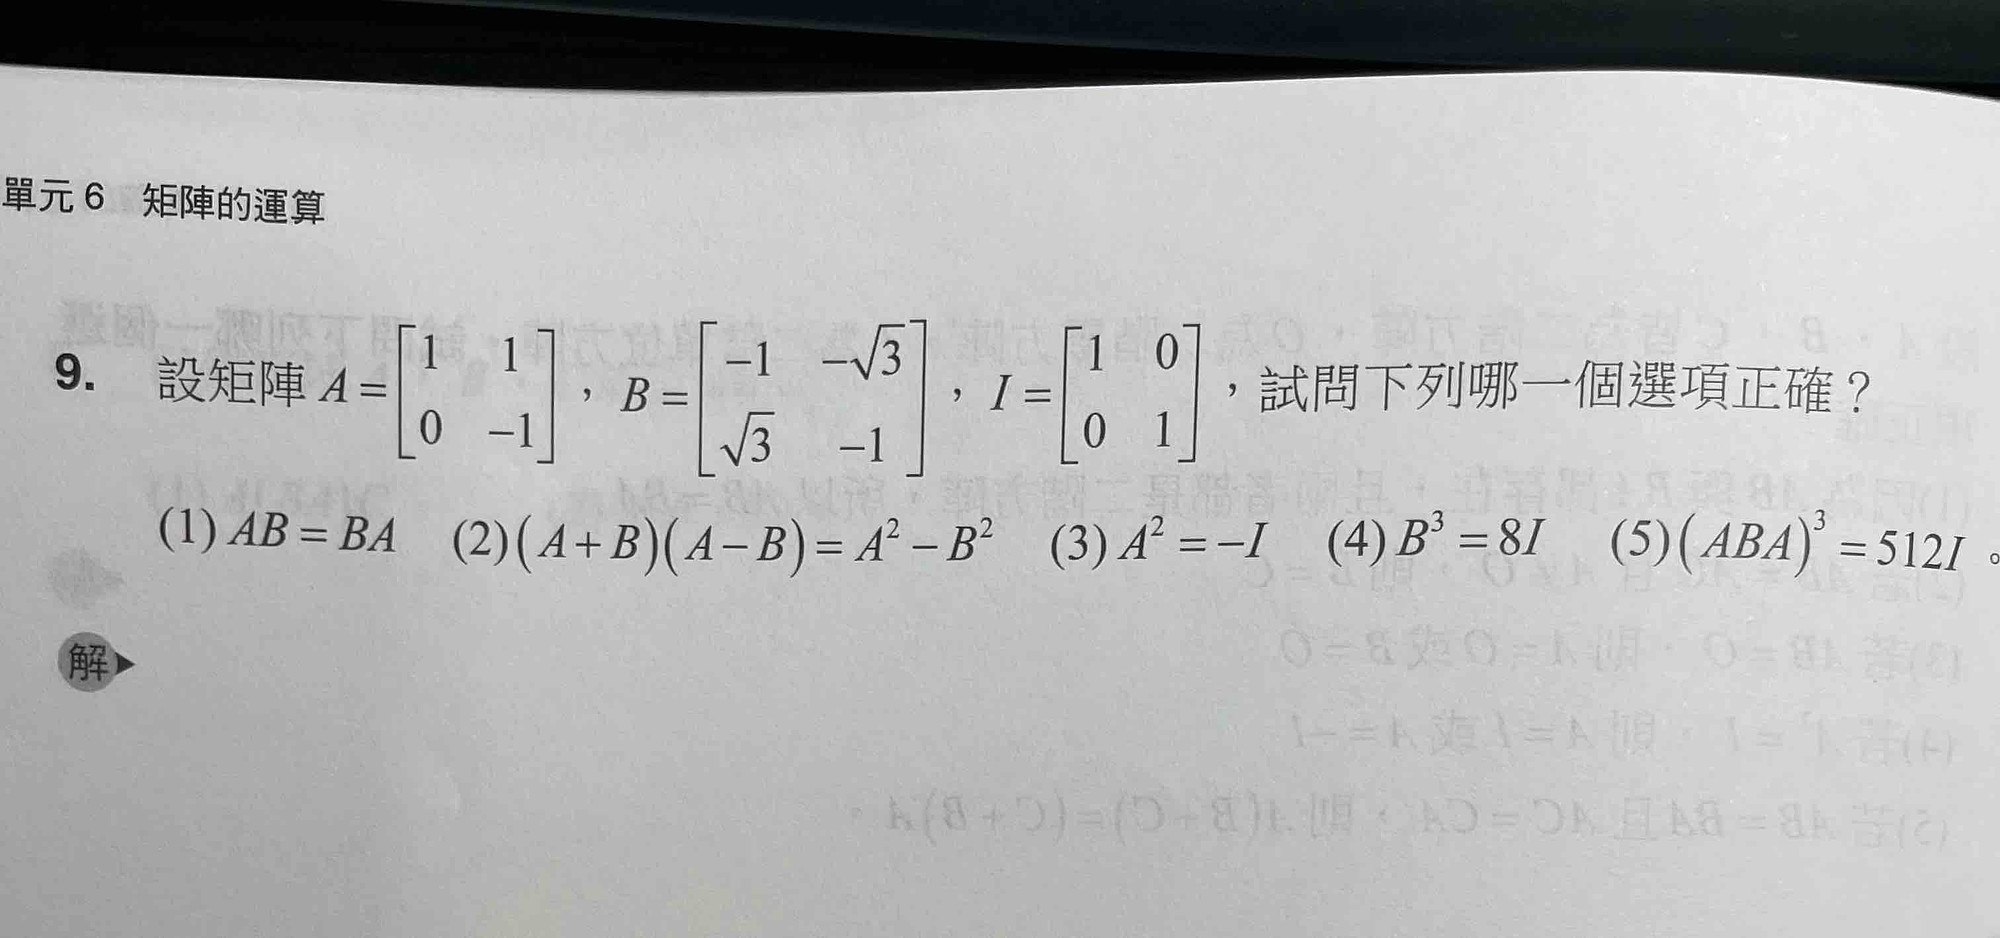 單元 6 矩陣的運算
9. 設矩陣 A = [1 1; 0 −1]，B = [−1 −√3; √3 −1]，I = [1 0; 0 1]，試問下列哪一個選項正確？
(1) AB = BA (2) (A+B)(A−B) = A² − B² (3) A² = −I (4) B³ = 8I (5) (ABA)³ = 512I。
解